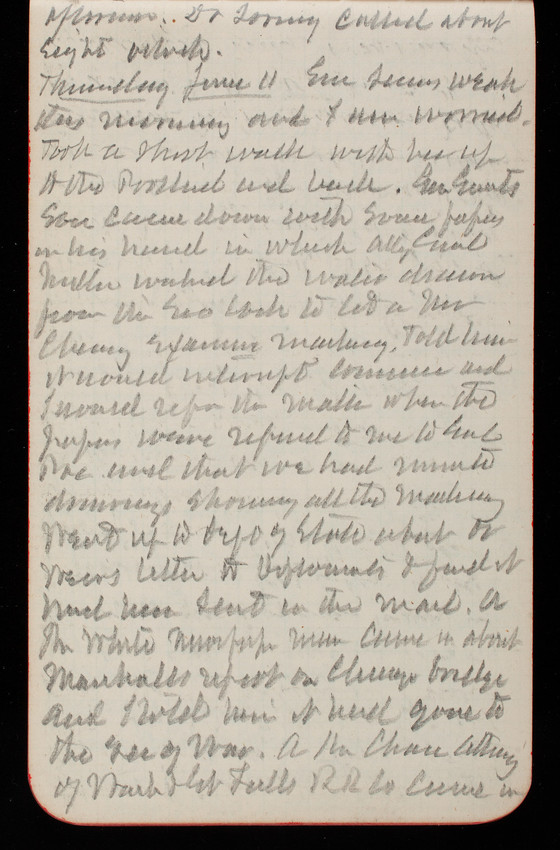 afternoon. Dr Loring called about
Eight oclock.
Thursday June 11 Em seems weak
this morning and I am worried.
Took a short walk with her up
to the and back. Gen Grants
Son came down with some papers
in his hand in which Atty Genl
Miller wanted the water drawn
from the Soo Lock to let a Mr
Cheney Examine machinery. Told him
it would interrupt commerce and
I would refer the matter when the
papers were referred to me to Genl
Poe and that we had minute
drawings showing all the machinery
Went up to Dept of State about Dr
letter to & find it
had been sent in the mail. A
Mr White newspaper man came in about
Marshalls report on Chicago bridge
and I told him it had gone to
the Sec of War. A Mr Chase Attny
of St Falls RR Co came in